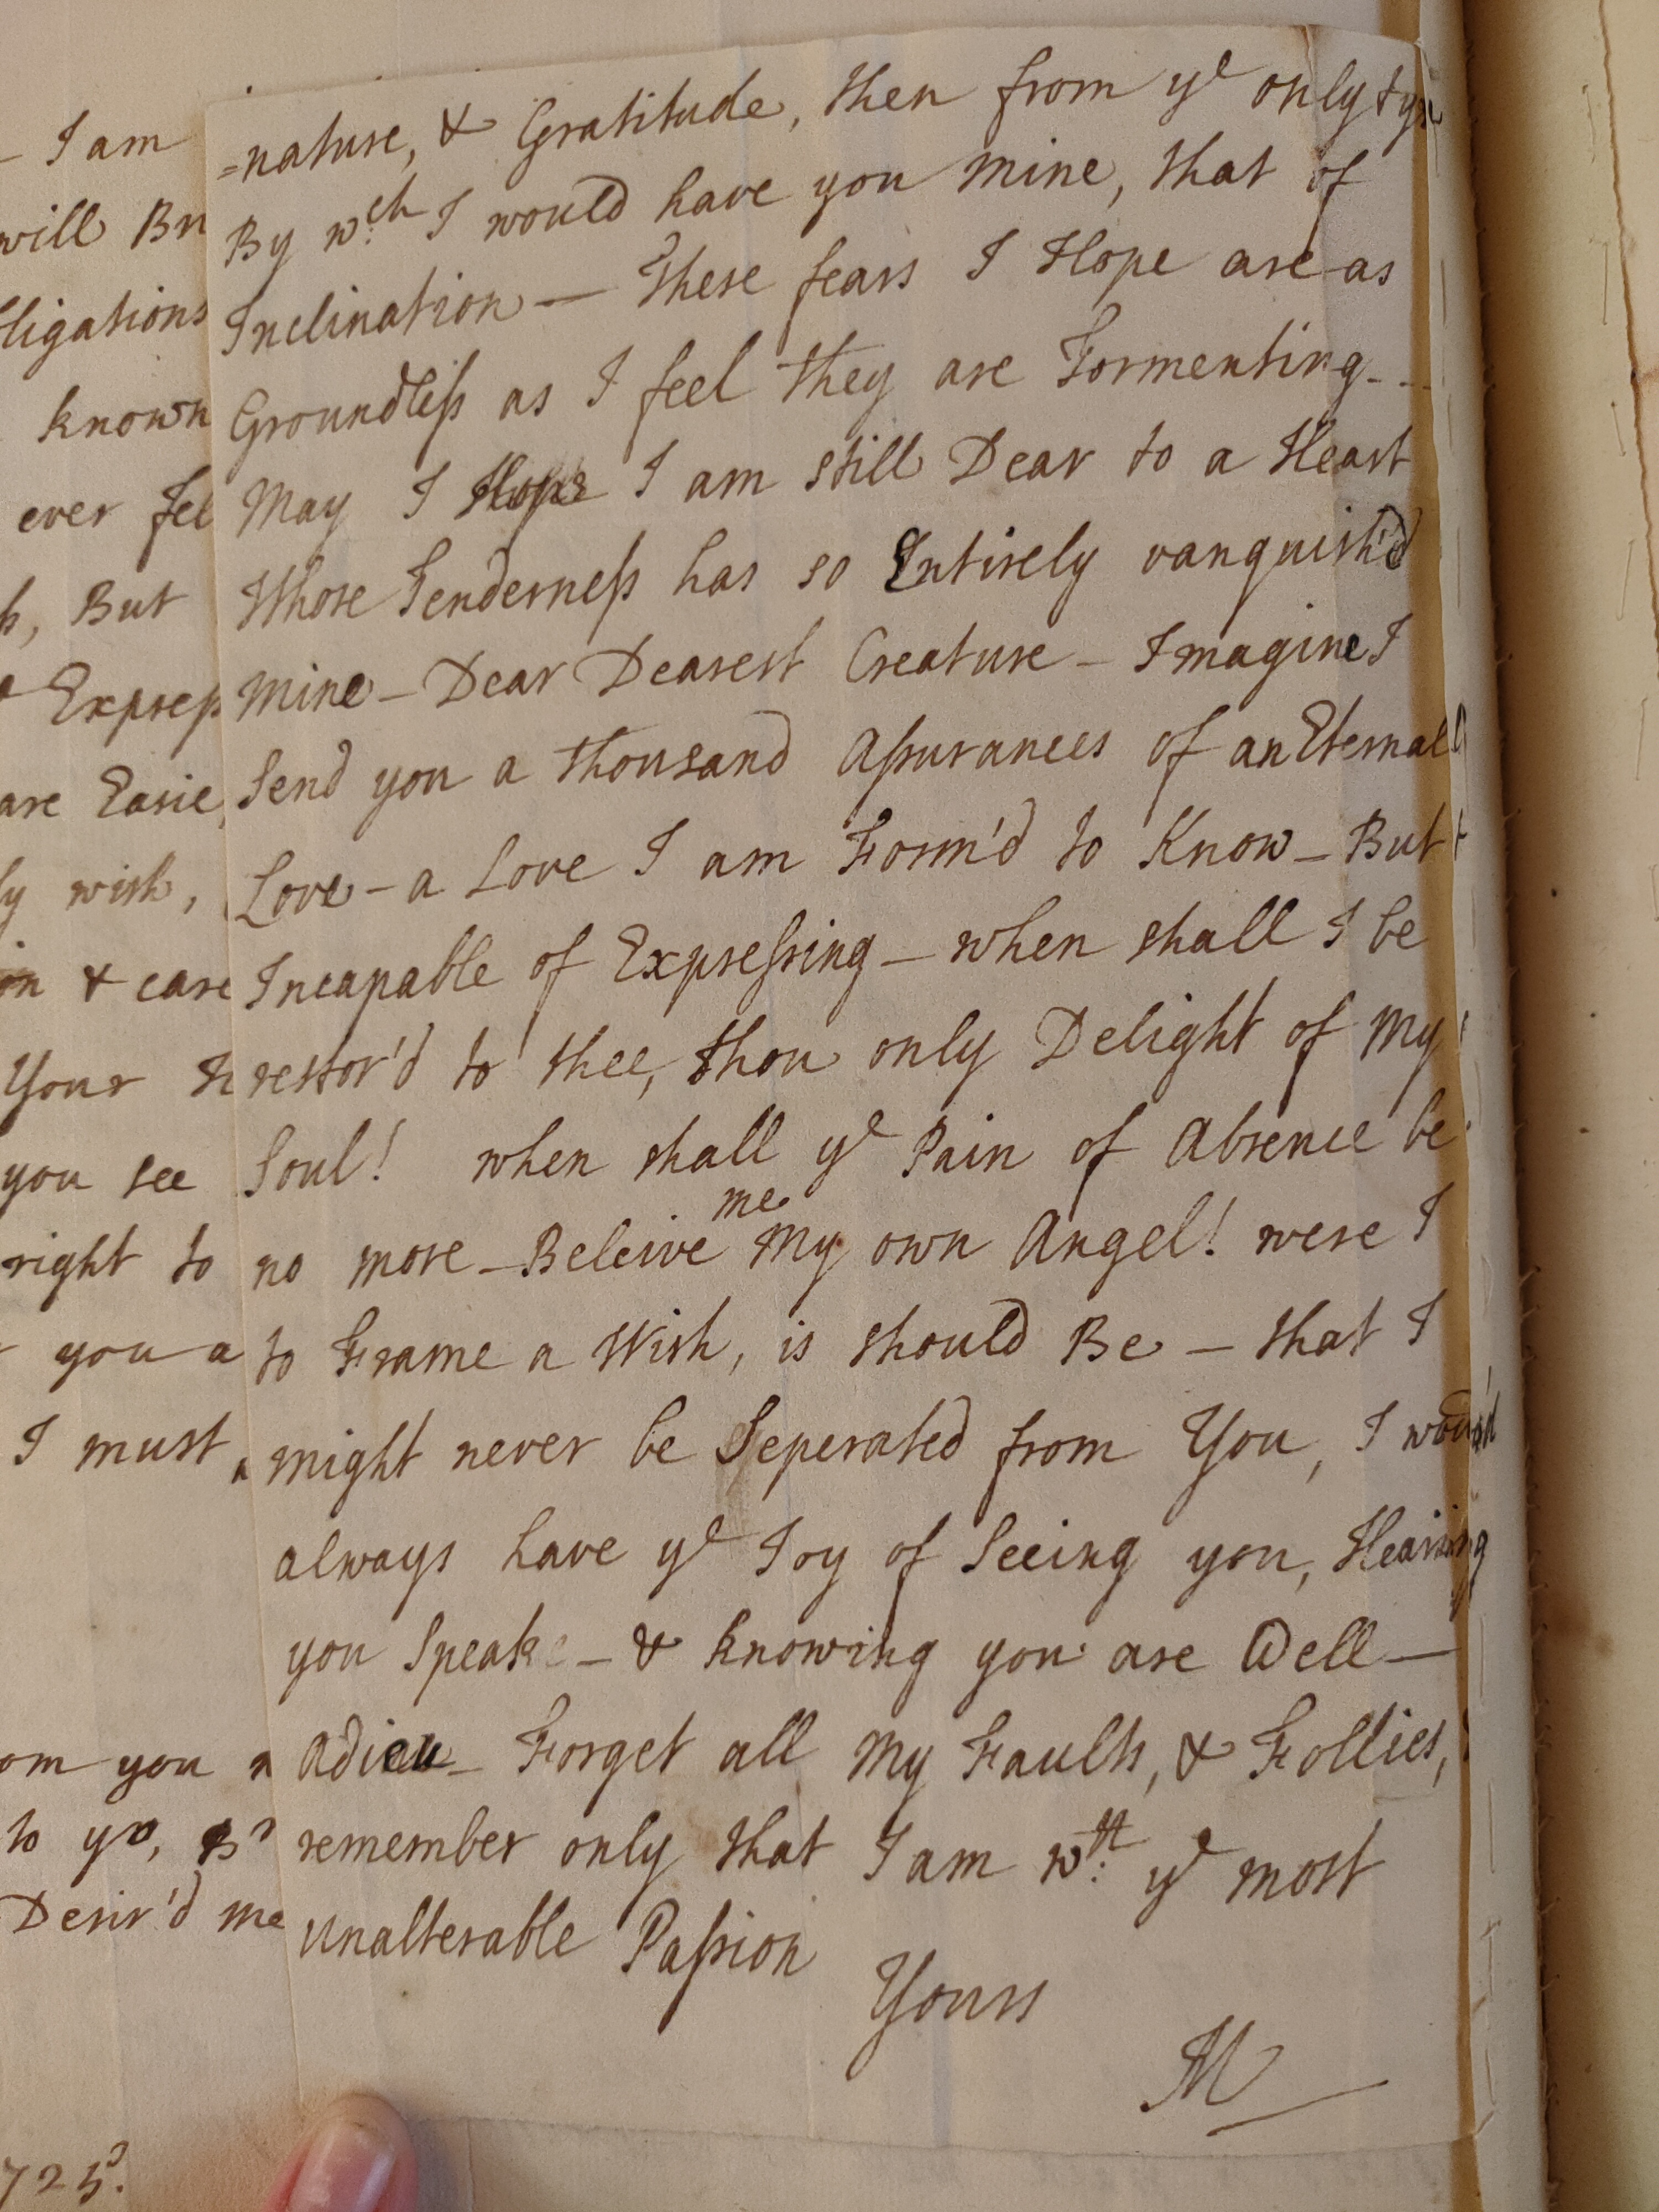 =nature, & Gratitude, then from ye only tye
By wch I would have you mine, that of
Inclination — These fears I Hope are as
Groundless as I feel they are Tormenting - -
May I Hope I am still Dear to a Heart
Whose Tenderness has so Entirely vanquish'd
mine - Dear Dearest Creature - Imagine I
Send you a thousand Assurances of an Eternall
Love - a Love I am Form'd to Know - But
Incapable of Expressing - when shall I be
restor'd to thee, thou only Delight of My
Soul! when shall ye Pain of Absence be
no more - Beleive me My own Angel! were I
to Frame a Wish, is should Be - that I
might never be Seperated from You, I would
always have ye Joy of Seeing you, Hearing
you Speake - & knowing you are Well —
Adieu - Forget all My Faults, & Follies,
remember only that I am wth ye most
Unalterable Passion
Yours
M
- I am
will
ligations
known
ever
But
Express
are Easie,
ly wish,
in & care
Your
you see
right to
you a
I must
om you
to yo,
Desir'd me
725